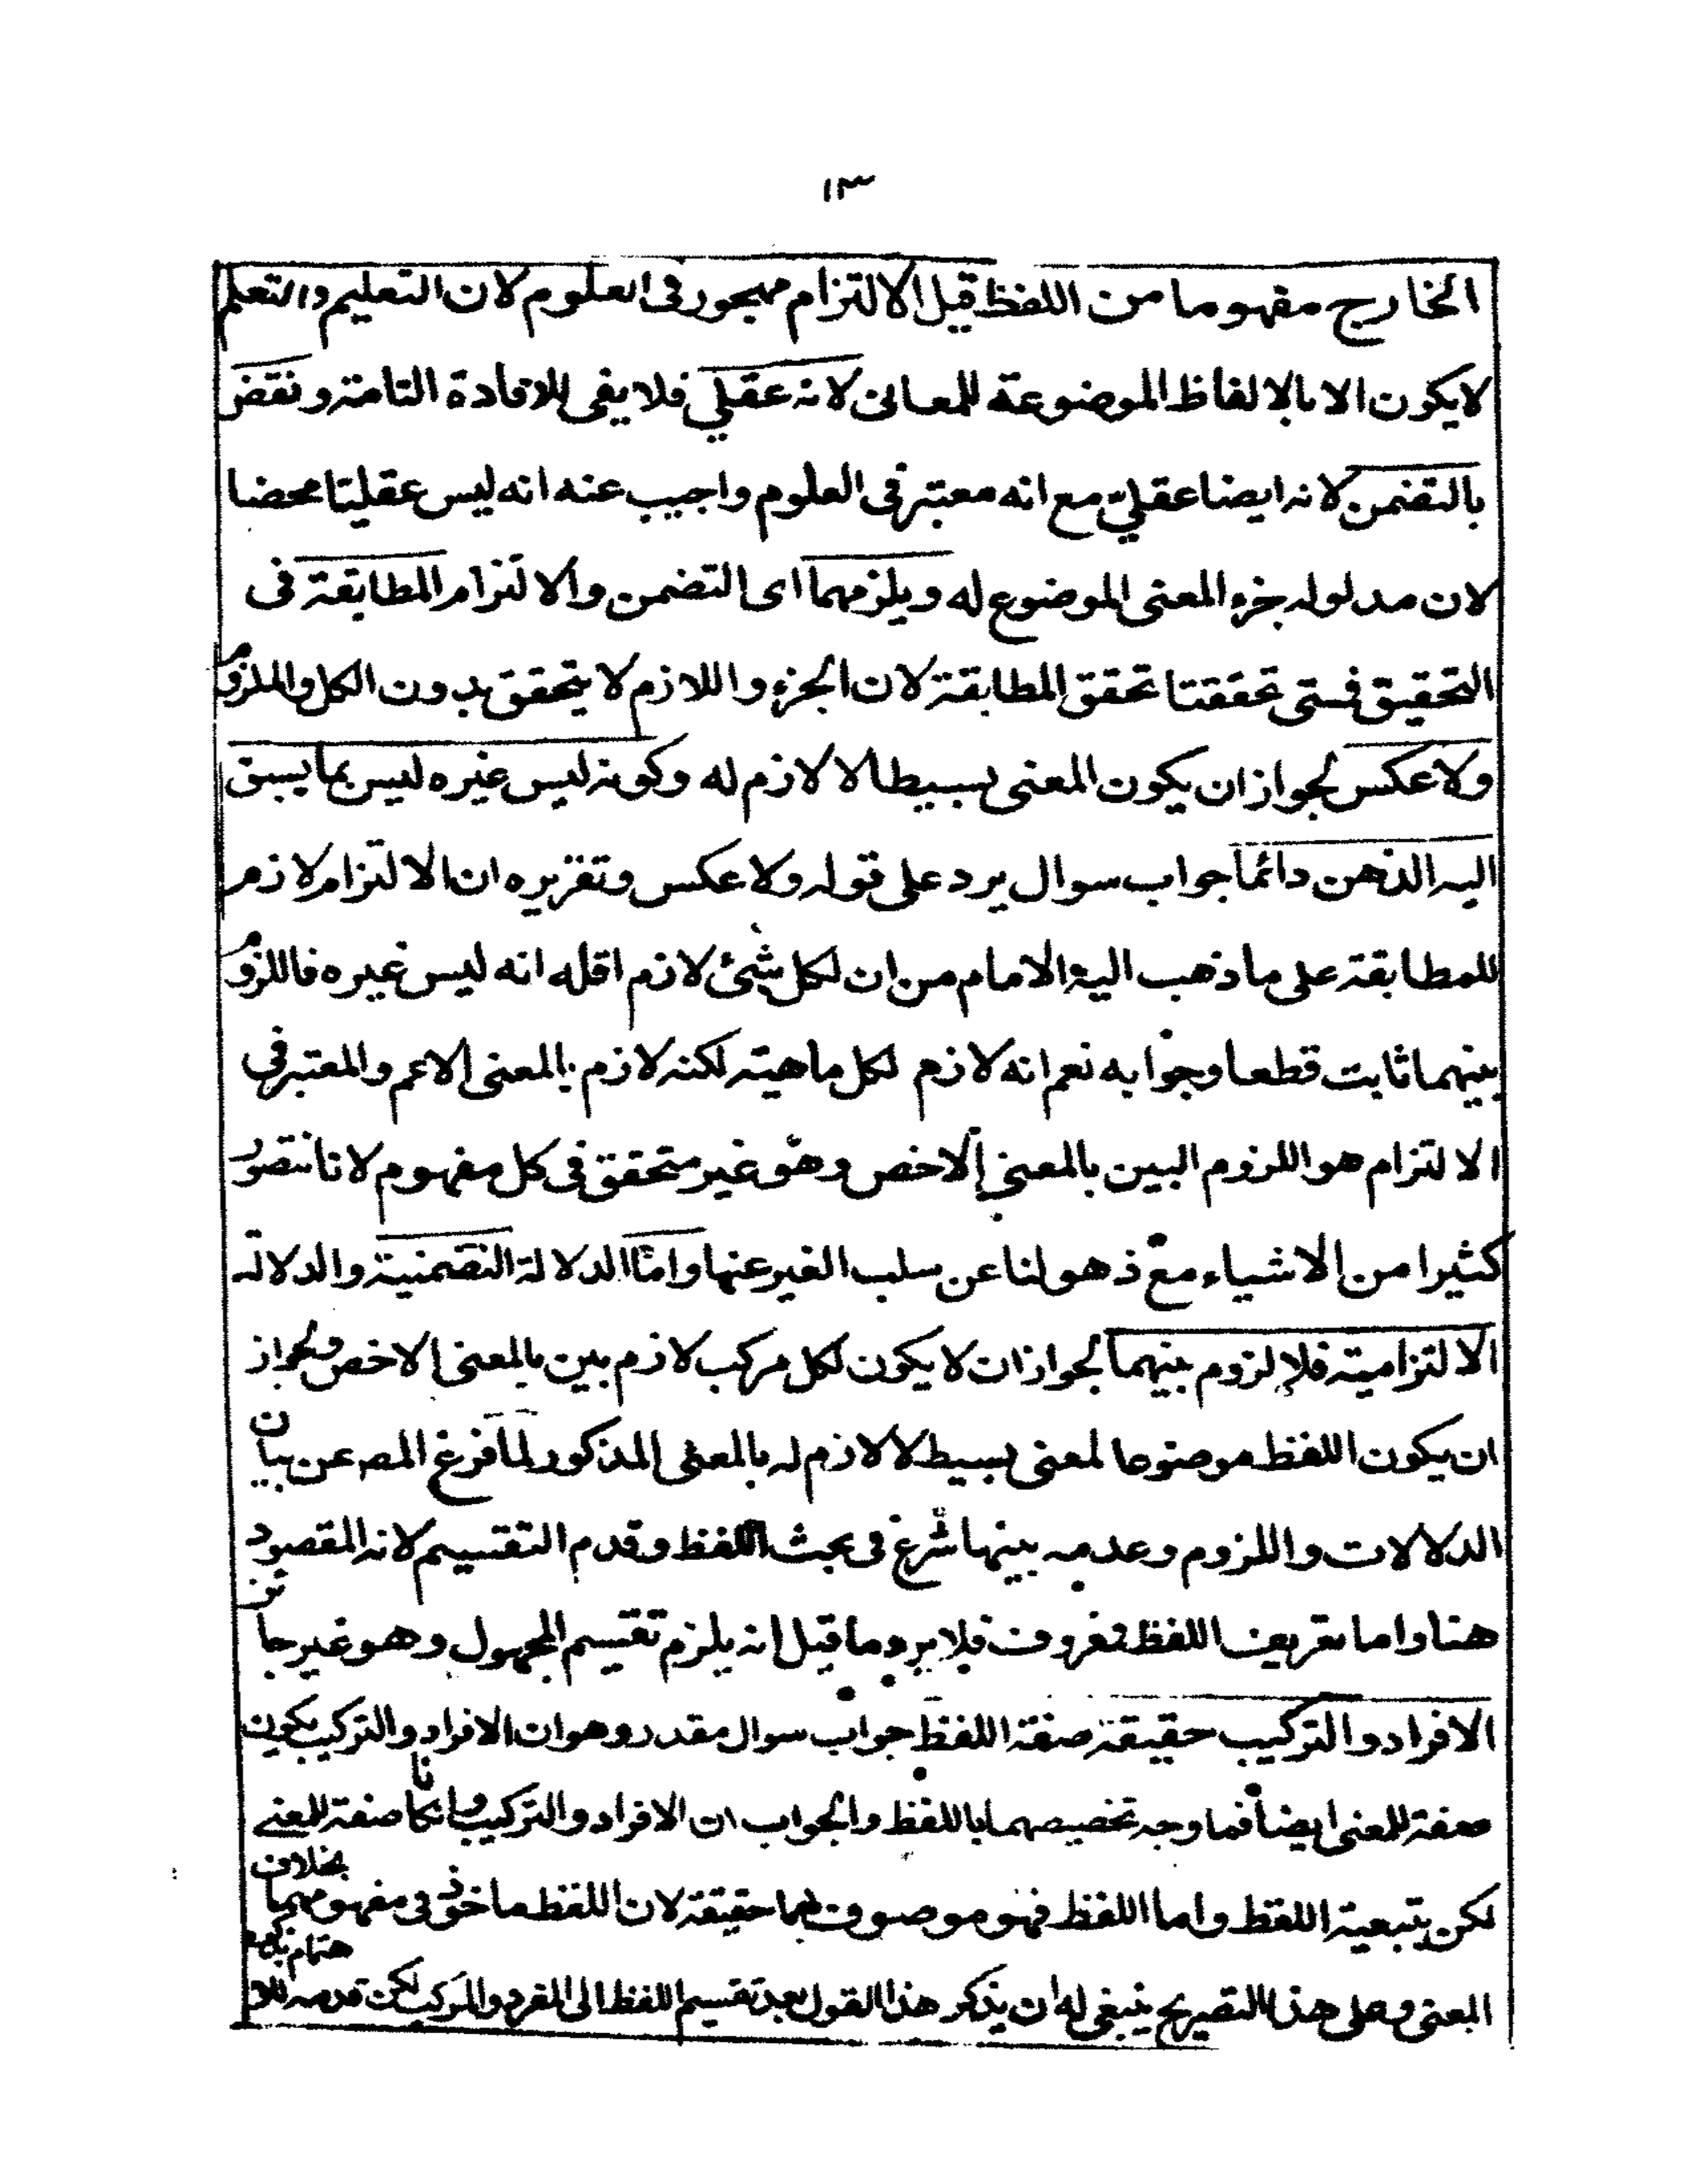 ١٣
الخارج مفهوما من اللفظ قيل الالتزام مهجور فى العلوم لان التعليم والتعلم
لايكون الا بالالفاظ الموضوعة للمعانى لانه عقلي فلا يفى للافادة التامة ونقض
بالتضمن لانه ايضا عقليّ مع انه معتبر فى العلوم واجيب عنه انه ليس عقليا محضا
لان مدلوله جزء المعنى الموضوع له ويلزمهما اى التضمن والالتزام المطابقة فى
التحقيق فمتى تحققتا تحقق المطابقة لان الجزء واللازم لا يتحقق بدون الكل والملزوم
ولا عكس لجواز ان يكون المعنى بسيطا لا لازم له وكونه ليس غيره ليس بما يسبق
اليه الذهن دائما جواب سوال يرد على قوله ولا عكس وتقريره ان الالتزام لازم
للمطابقة على ما ذهب اليه الامام من ان لكل شئ لازم اقله انه ليس غيره فاللزوم
بينهما ثابت قطعا وجوابه نعم انه لازم لكل ماهية لكنه لازم بالمعنى الاعم والمعتبر فى
الالتزام هو اللزوم البين بالمعنى الاخص وهو غير متحقق فى كل مفهوم لانا نتصور
كثيرا من الاشياء مع ذهولنا عن سلب الغير عنها وامّا الدلالة التضمنية والدلالة
الالتزامية فلا لزوم بينهما لجواز ان لا يكون لكل مركب لازم بين بالمعنى الاخص ولجواز
ان يكون اللفظ موضوعا لمعنى بسيط لا لازم له بالمعنى المذكور لما فرغ المصـ عن بيان
الدلالات واللزوم وعدمه بينها شرع فى بحث اللفظ وقدم التقسيم لانه المقصود
هنا واما تعريف اللفظ فمعروف فلا يرد ما قيل انه يلزم تقسيم المجهول وهو غير جائز
الافراد والتركيب حقيقة صفة اللفظ جواب سوال مقدر وهو ان الافراد والتركيب يكون
صفة للمعنى ايضا فما وجه تخصيصهما باللفظ والجواب ان الافراد والتركيب وان كانا صفة للمعنى
لكن بتبعية اللفظ واما اللفظ فهو موصوف بهما حقيقة لان اللفظ ماخوذ فى مفهومهما بخلاف
المعنى وعلى هذا التصريح ينبغى له ان يذكر هذا القول بعد تقسيم اللفظ الى المفرد والمركب لكن قدمه للاهتمام